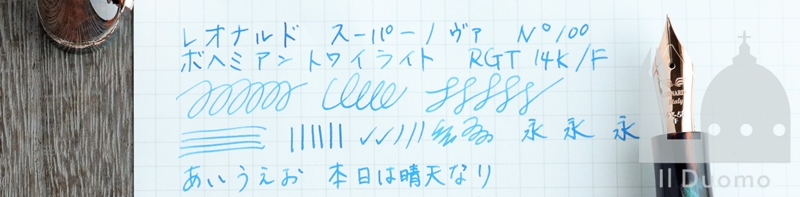 レオナルド スーパーノヴァ Nº100
ボヘミアントワイライト RGT 14K/F
永 永 永
あいうえお 本日は晴天なり
Il Duomo